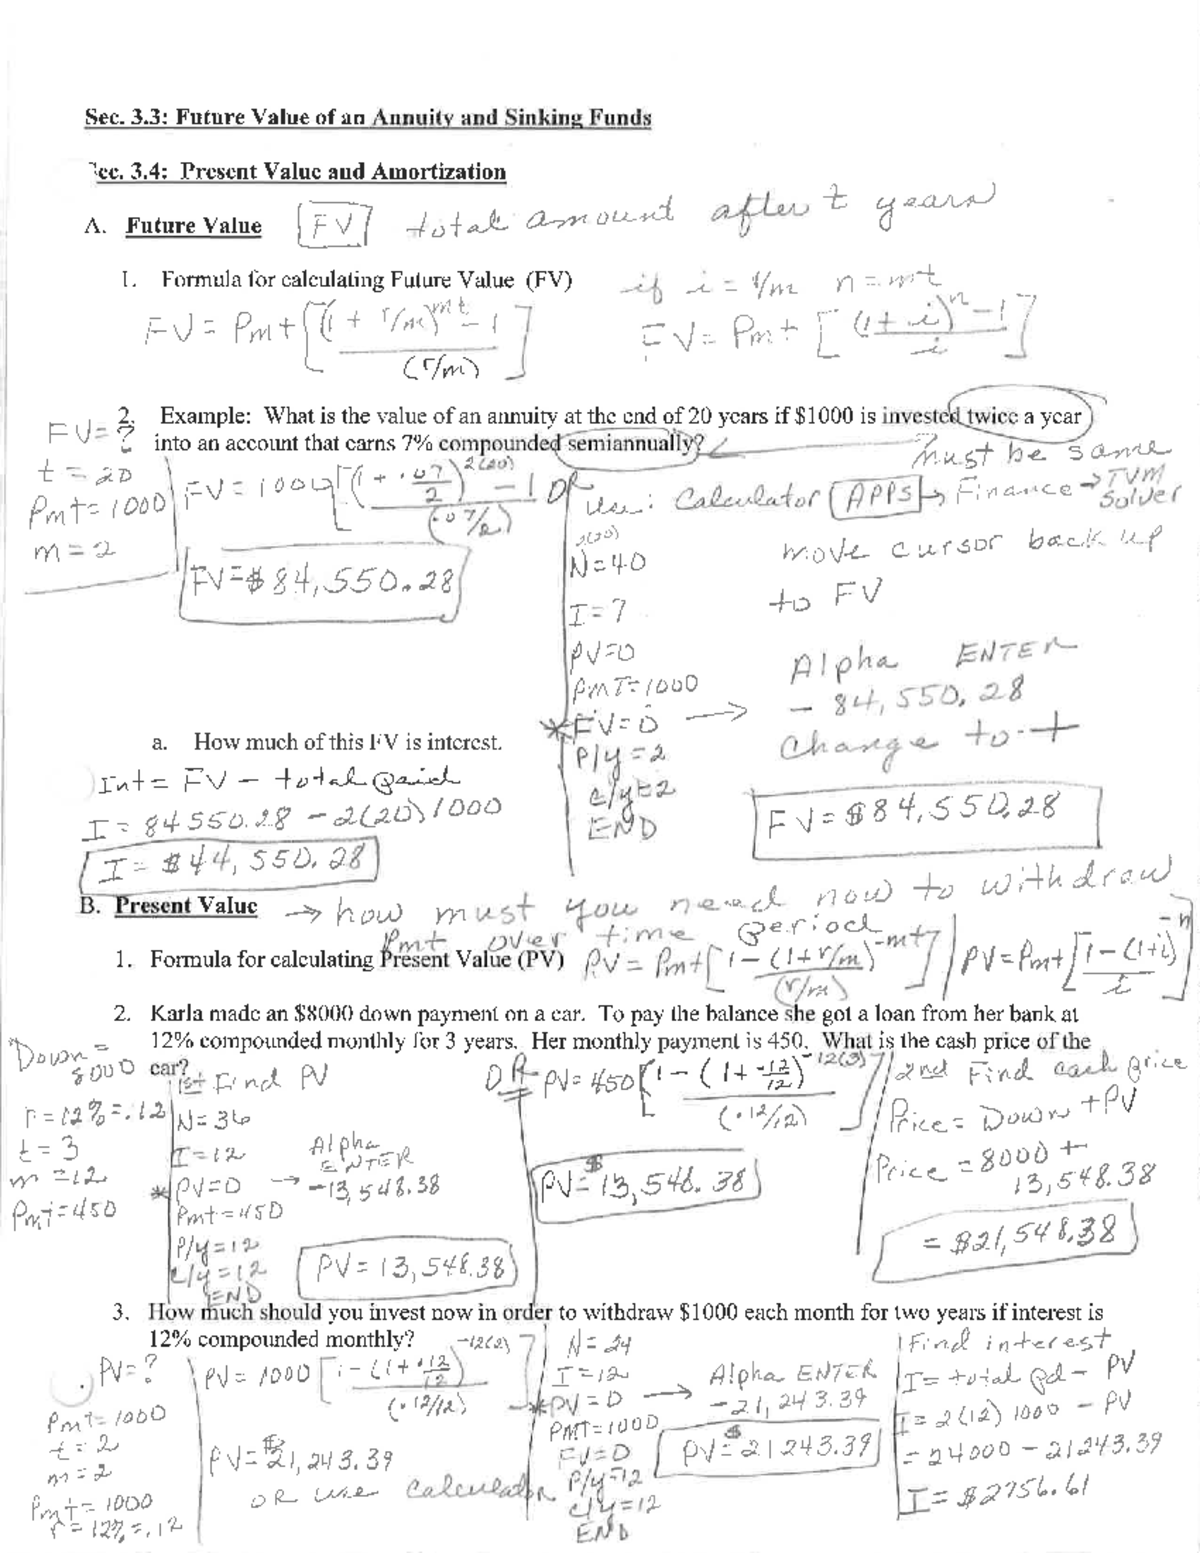 Sec. 3.3: Future Value of an Annuity and Sinking Funds
ec. 3.4: Present Value and Amortization
A. Future Value FV total amount after t years
1. Formula for calculating Future Value (FV) if i = r/m n = mt
FV = Pmt [(1 + r/m)^mt - 1 / (r/m)] FV = Pmt [(1 + i)^n - 1 / i]
2. Example: What is the value of an annuity at the end of 20 years if $1000 is invested twice a year
into an account that earns 7% compounded semiannually?
must be same
FV = ?
t = 20
Pmt = 1000
m = 2
FV = 1000 [(1 + .07/2)^2(20) - 1 / (.07/2)] OR
FV = $84,550.28
use: Calculator APPS → Finance → TVM Solver
move cursor back up
to FV
2(20)
N = 40
I = 7
PV = 0
PMT = 1000
* FV = 0 →
P/y = 2
c/y = 2
END
Alpha ENTER
- 84,550.28
Change to +
FV = $84,550.28
a. How much of this FV is interest.
Int = FV - total paid
I = 84550.28 - 2(20)1000
I = $44,550.28
B. Present Value → how must you need now to withdraw
Pmt over time period
1. Formula for calculating Present Value (PV) PV = Pmt [1 - (1 + r/m)^-mt / (r/m)] PV = Pmt [1 - (1+i)^-n / i]
2. Karla made an $8000 down payment on a car. To pay the balance she got a loan from her bank at
12% compounded monthly for 3 years. Her monthly payment is 450. What is the cash price of the
car?
Down = 8000
r = 12% = .12
t = 3
m = 12
Pmt = 450
1st Find PV
N = 36
I = 12
* PV = 0 →
Pmt = 450
P/y = 12
c/y = 12
END
Alpha ENTER
-13,548.38
PV = 13,548.38
OR PV = 450 [1 - (1 + .12/12)^-12(3) / (.12/12)]
PV = $13,548.38
2nd Find cash price
Price = Down + PV
Price = 8000 +
13,548.38
= $21,548.38
3. How much should you invest now in order to withdraw $1000 each month for two years if interest is
12% compounded monthly?
PV = ?
Pmt = 1000
t = 2
m = 2
Pmt = 1000
r = 12% = .12
PV = 1000 [1 - (1 + .12/12)^-12(2) / (.12/12)]
PV = $21,243.39
OR use calculator
N = 24
I = 12
* PV = 0 →
PMT = 1000
FV = 0
P/y = 12
c/y = 12
END
Alpha ENTER
- 21,243.39
PV = $21243.39
Find interest
I = total pd - PV
I = 2(12)1000 - PV
= 24000 - 21243.39
I = $2756.61